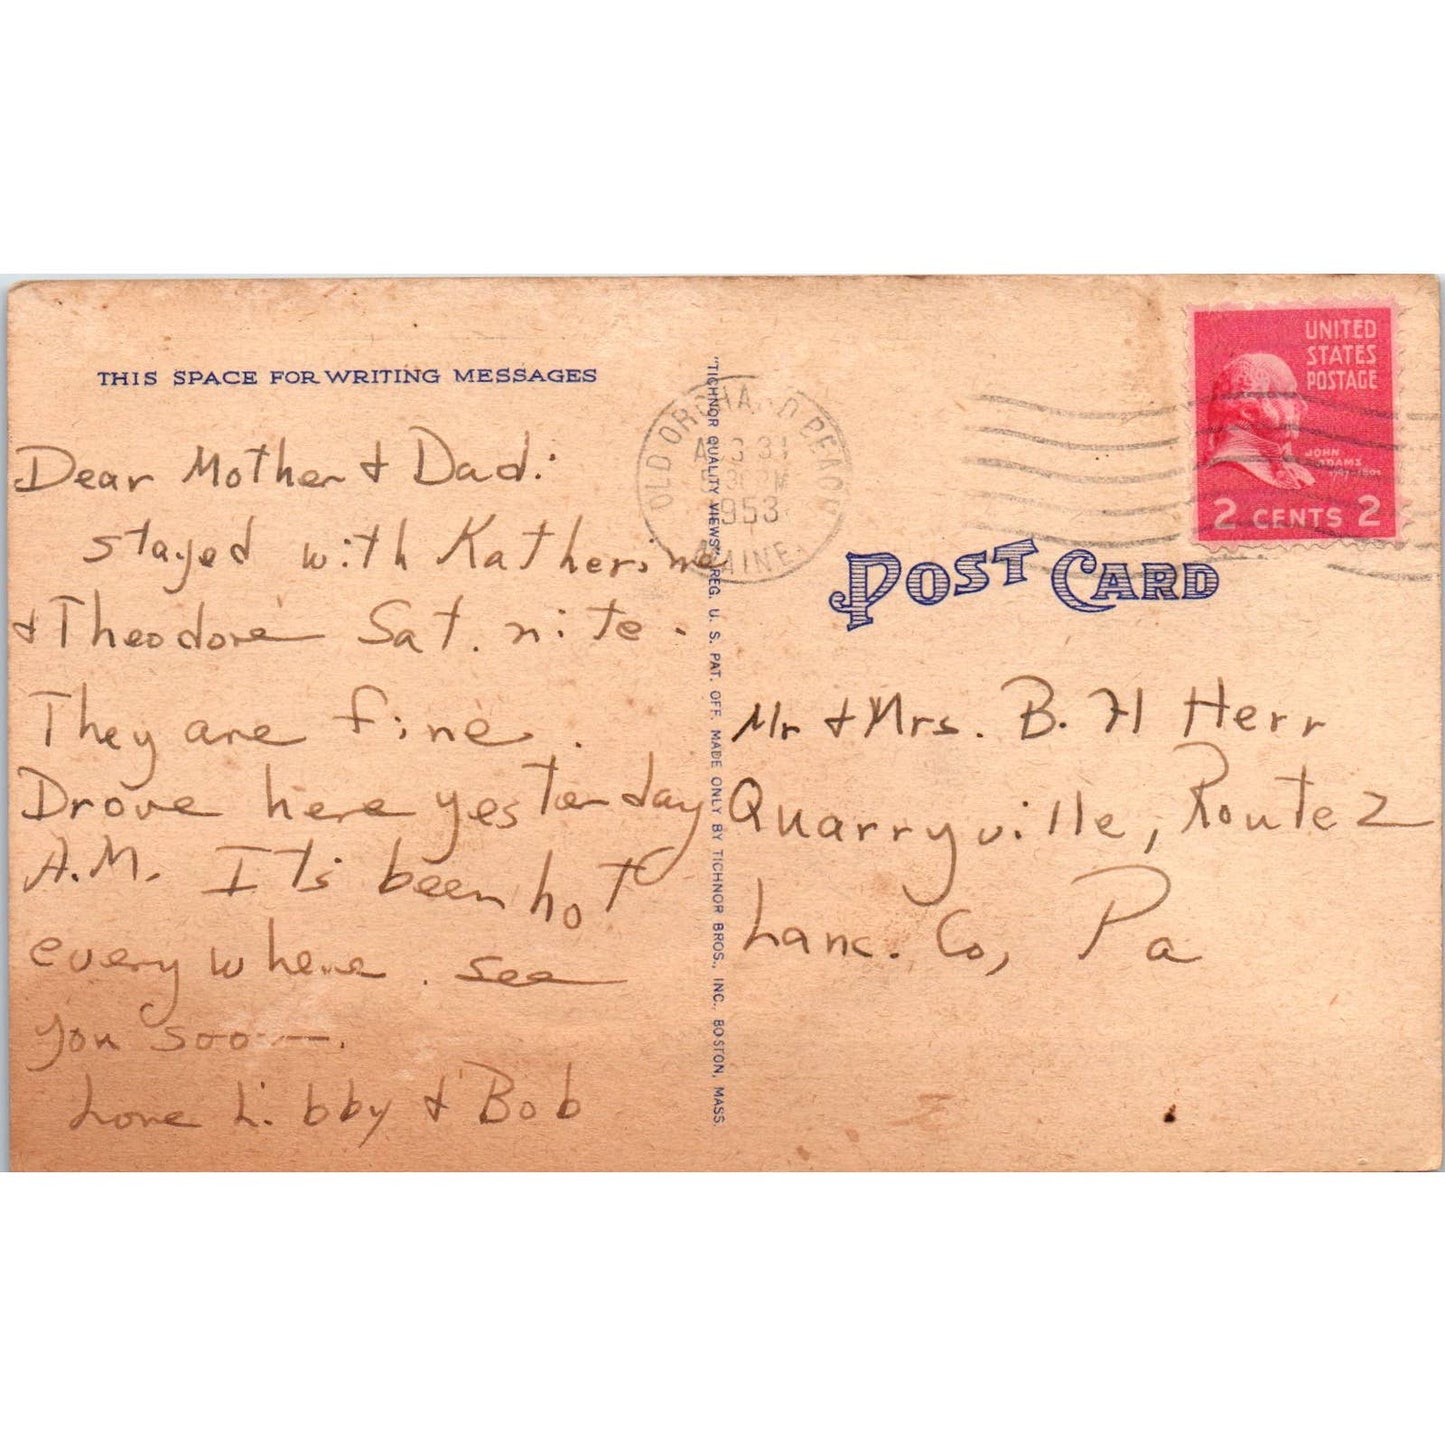 THIS SPACE FOR WRITING MESSAGES
Dear Mother & Dad:
stayed with Katherine
& Theodore Sat. nite.
They are fine.
Drove here yesterday
A.M. It's been hot
everywhere. see
you soon.
Love Libby & Bob
"TICHNOR QUALITY VIEWS," REG. U. S. PAT. OFF. MADE ONLY BY TICHNOR BROS., INC. BOSTON, MASS.
OLD ORCHARD BEACH
AUG 31
1953
MAINE
UNITED
STATES
POSTAGE
JOHN
ADAMS
2 CENTS 2
POST CARD
Mr & Mrs. B. H Herr
Quarryville, Route 2
Lanc. Co, Pa